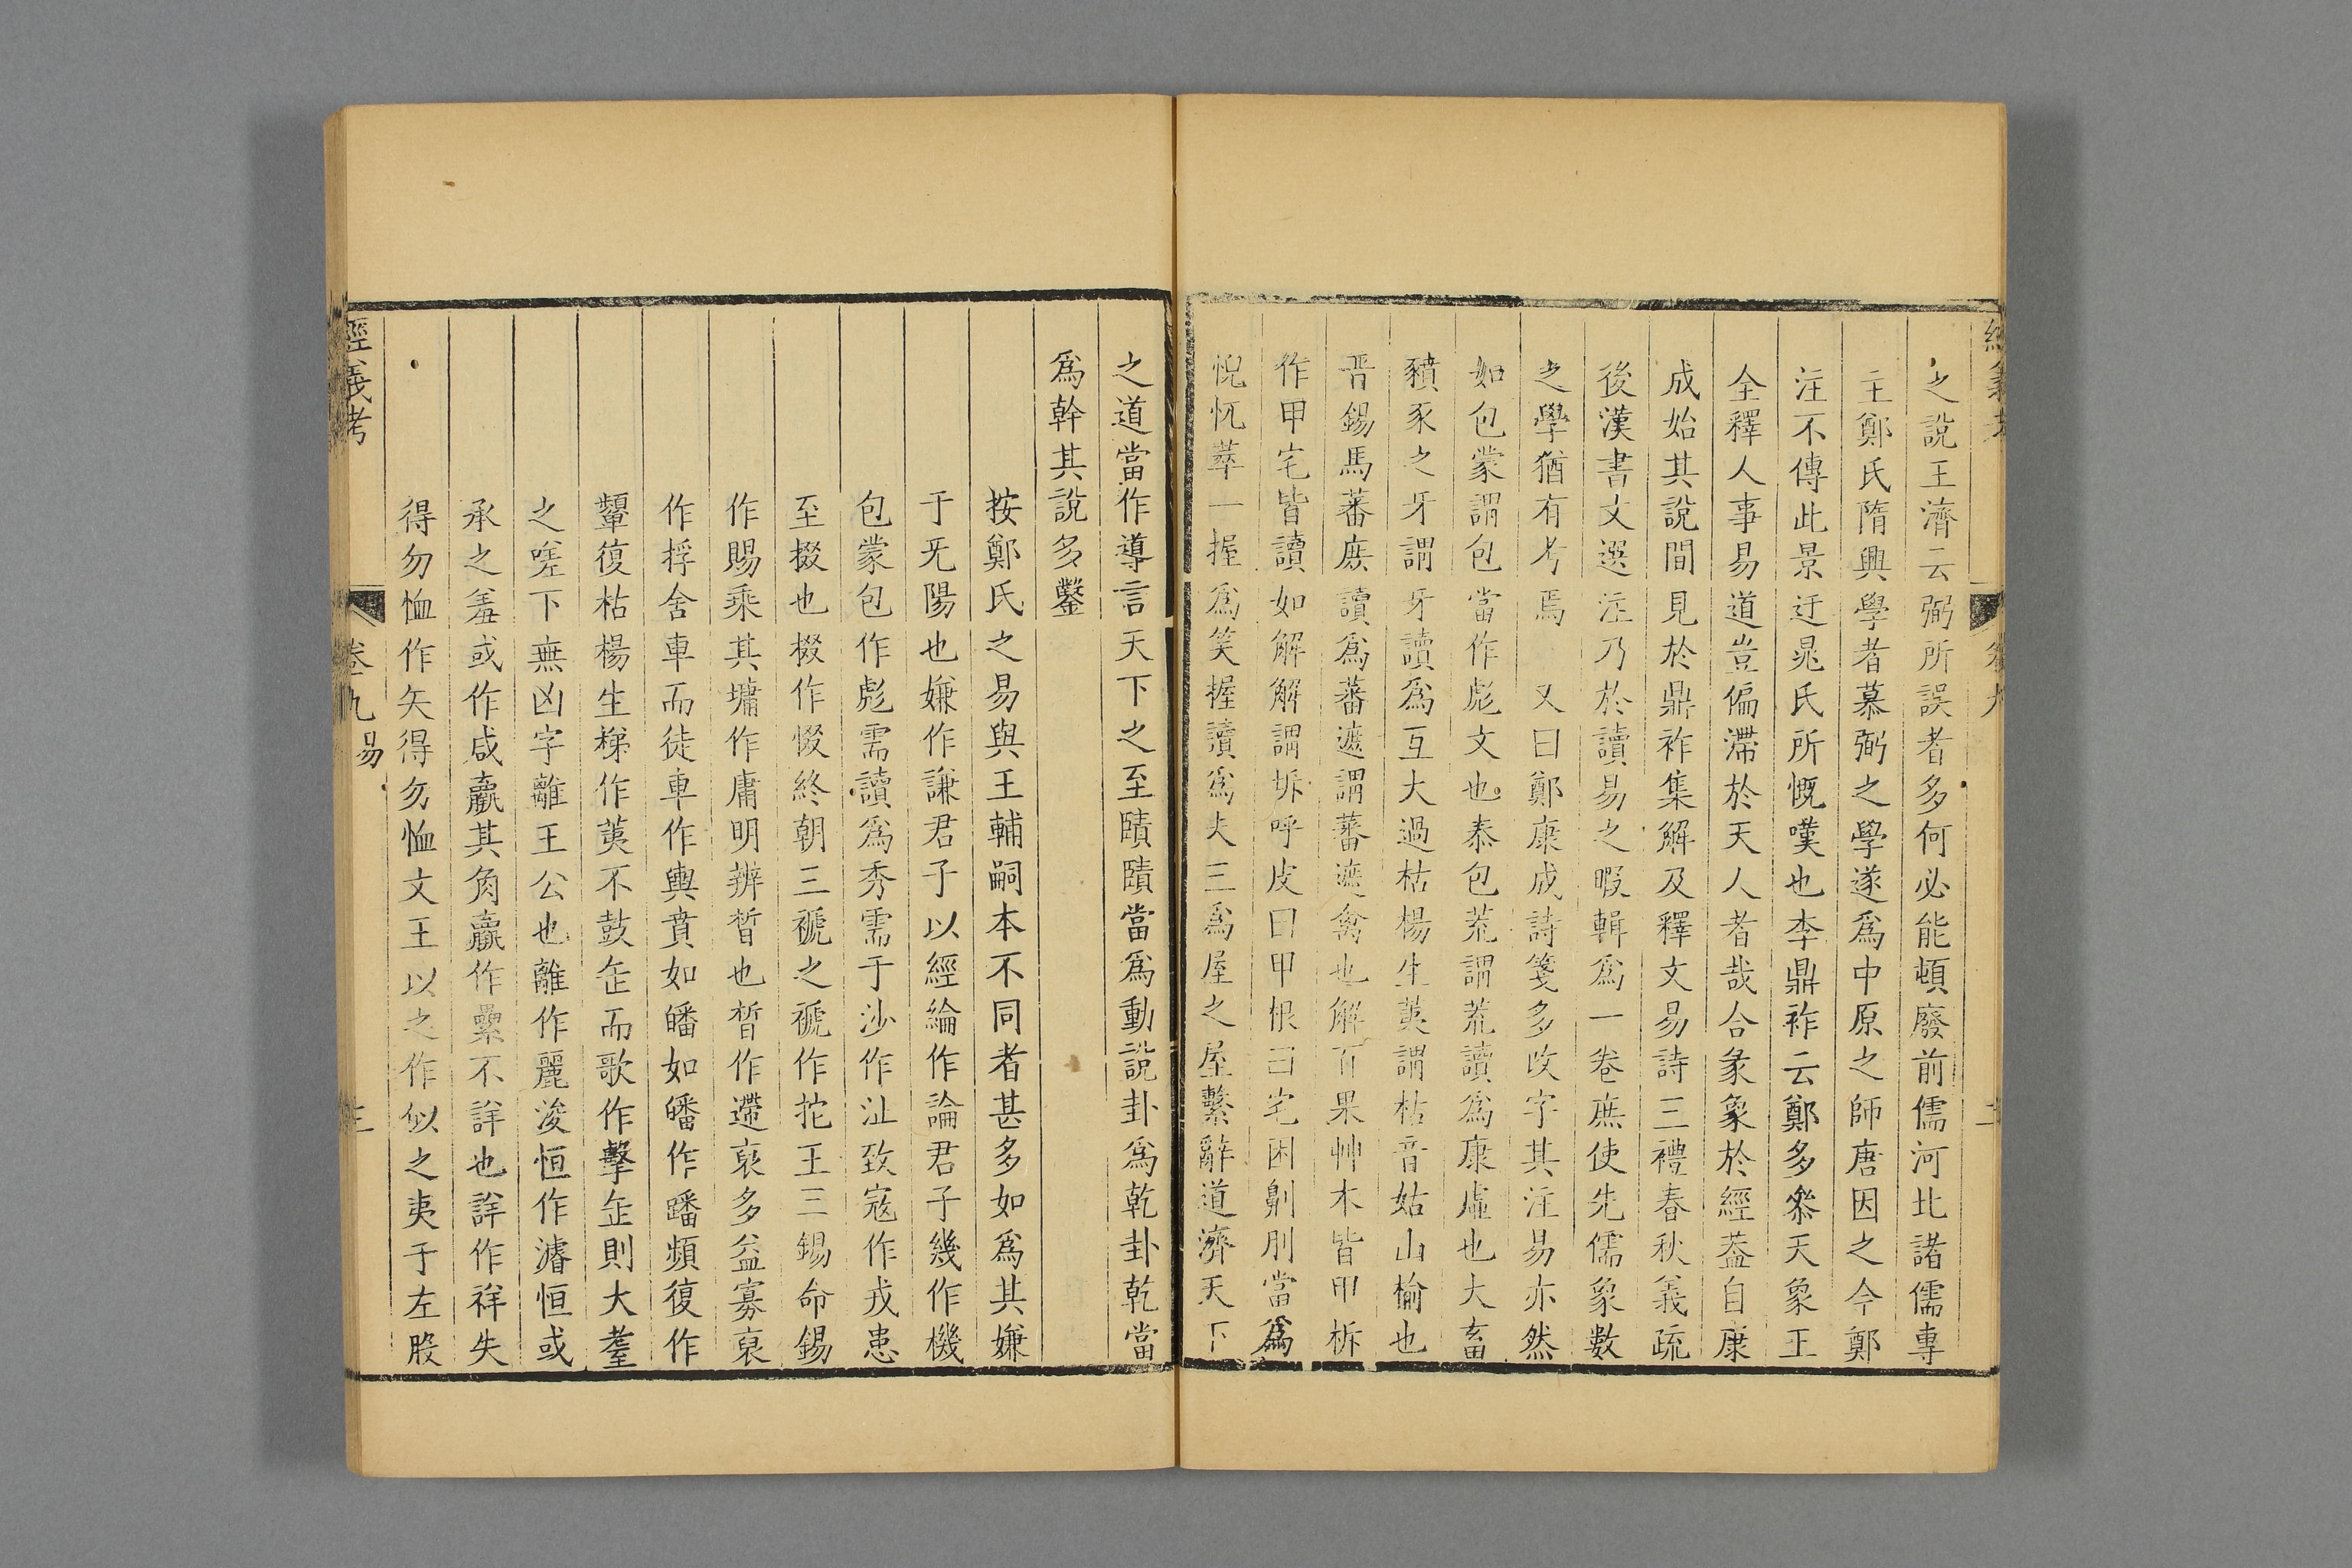 之說王濟云弼所誤者多何必能頓廢前儒河北諸儒專
主鄭氏隋興學者慕弼之學遂爲中原之師唐因之今鄭
注不傳此景迂晁氏所慨嘆也李鼎祚云鄭多叅天象王
全釋人事易道豈偏滯於天人者哉合彖象於經葢自康
成始其說間見於鼎祚集解及釋文易詩三禮春秋義疏
後漢書文選注乃於讀易之暇輯爲一卷庶使先儒象數
之學猶有考焉 又曰鄭康成詩箋多改字其注易亦然
如包蒙謂包當作彪文也泰包荒謂荒讀爲康虛也大畜
豶豕之牙謂牙讀爲互大過枯楊生荑謂枯音姑山榆也
晉錫馬蕃庶讀爲蕃遮謂蕃遮禽也解百果艸木皆甲柝
作甲宅皆讀如解解謂坼呼皮曰甲根曰宅困劓刖當爲
倪㐳萃一握爲笑握讀爲夫三爲屋之屋繫辭道濟天下
之道當作導言天下之至賾賾當爲動說卦爲乾卦乾當
爲幹其說多鑿
按鄭氏之易與王輔嗣本不同者甚多如爲其嫌
于无陽也嫌作謙君子以經綸作論君子幾作機
包蒙包作彪需讀爲秀需于沙作沚致寇作戎患
至掇也掇作惙終朝三褫之褫作扡王三錫命錫
作賜乘其墉作庸明辨晢也晢作遰裒多益寡裒
作捊舍車而徒車作輿賁如皤如皤作蹯頻復作
顰復枯楊生稊作荑不鼓缶而歌作擊缶則大耋
之嗟下無凶字離王公也離作麗浚恒作濬恒或
承之羞或作咸羸其角羸作纍不詳也詳作祥失
得勿恤作矢得勿恤文王以之作似之夷于左股
經義考
卷九 易